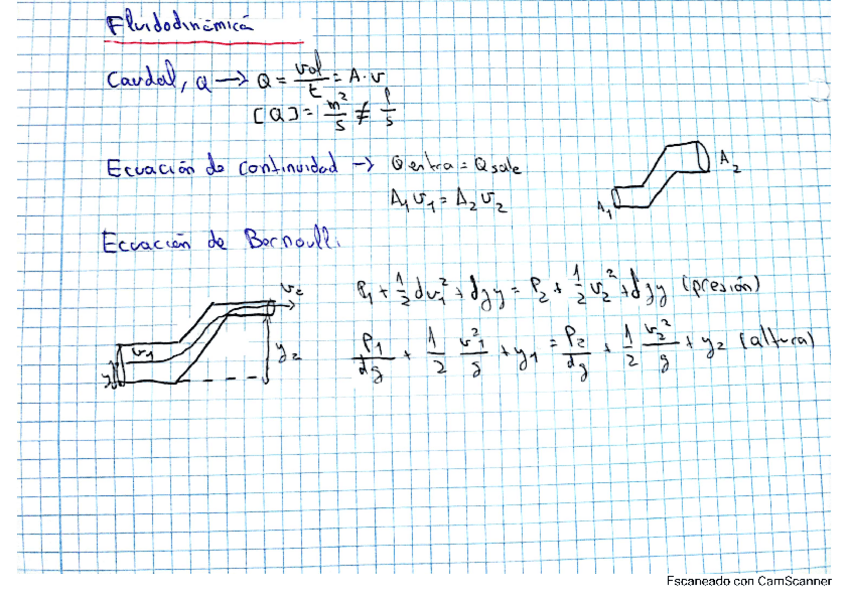 Fluidodinámica
Caudal, Q → Q = vol/t = A · v
[Q] = m²/s ≠ l/s
Ecuación de continuidad → Q entra = Q sale
A₁ v₁ = A₂ v₂
A₁
A₂
Ecuación de Bernoulli
P₁ + 1/2 d v₁² + d g y = P₂ + 1/2 v₂² + d g y (presión)
P₁/dg + 1/2 v₁²/g + y₁ = P₂/dg + 1/2 v₂²/g + y₂ (altura)
v₂
v₁
y₂
y
Escaneado con CamScanner